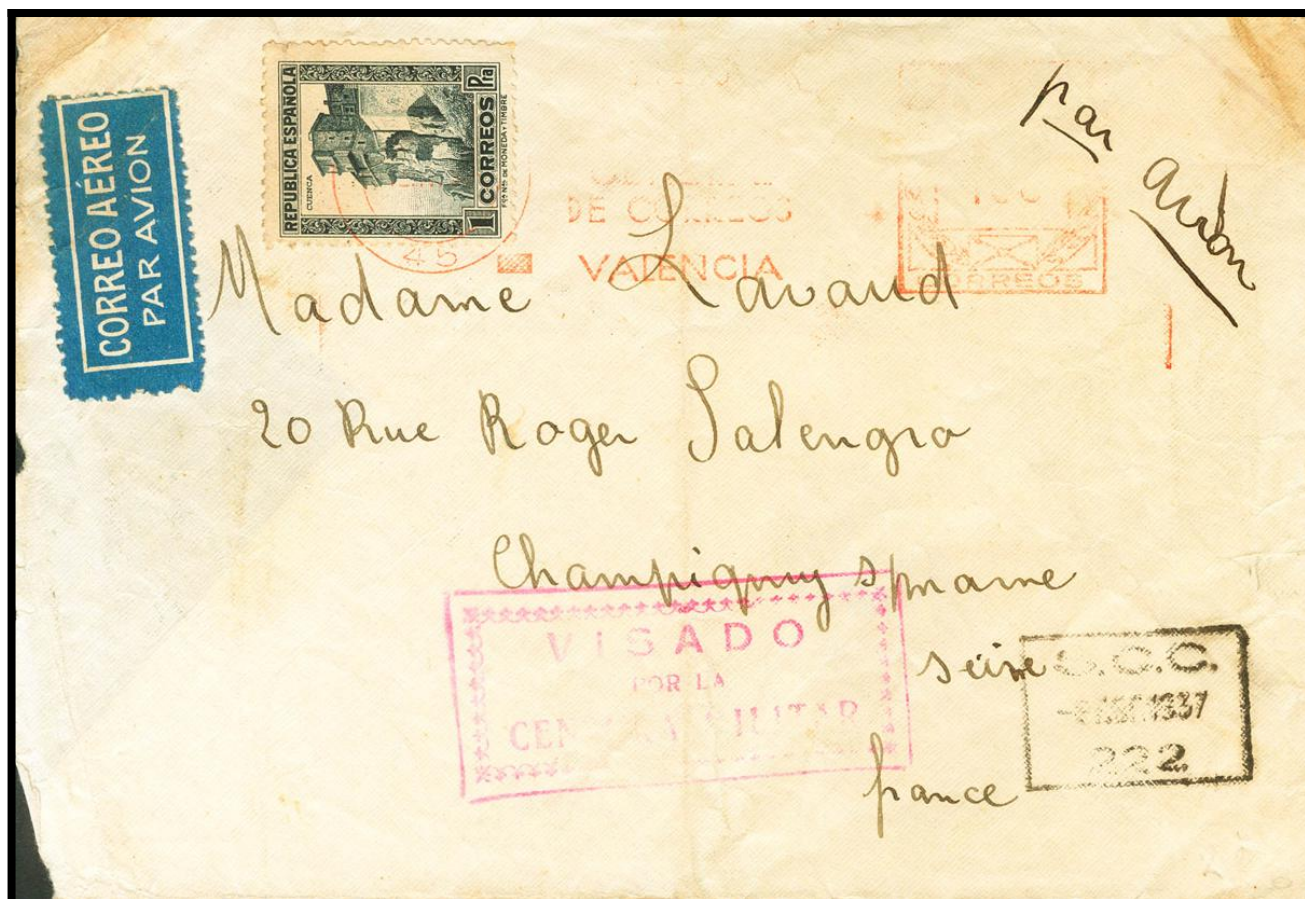 CORREO AÉREO
PAR AVION
REPUBLICA ESPAÑOLA
CUENCA
1 CORREOS Pta
DE CORREOS
VALENCIA
CORREOS
45
par avion
Madame Lavaud
20 Rue Roger Salengro
Champigny s/marne
seine
france
VISADO
POR LA
CENSURA MILITAR
S.C.C.
1937
222